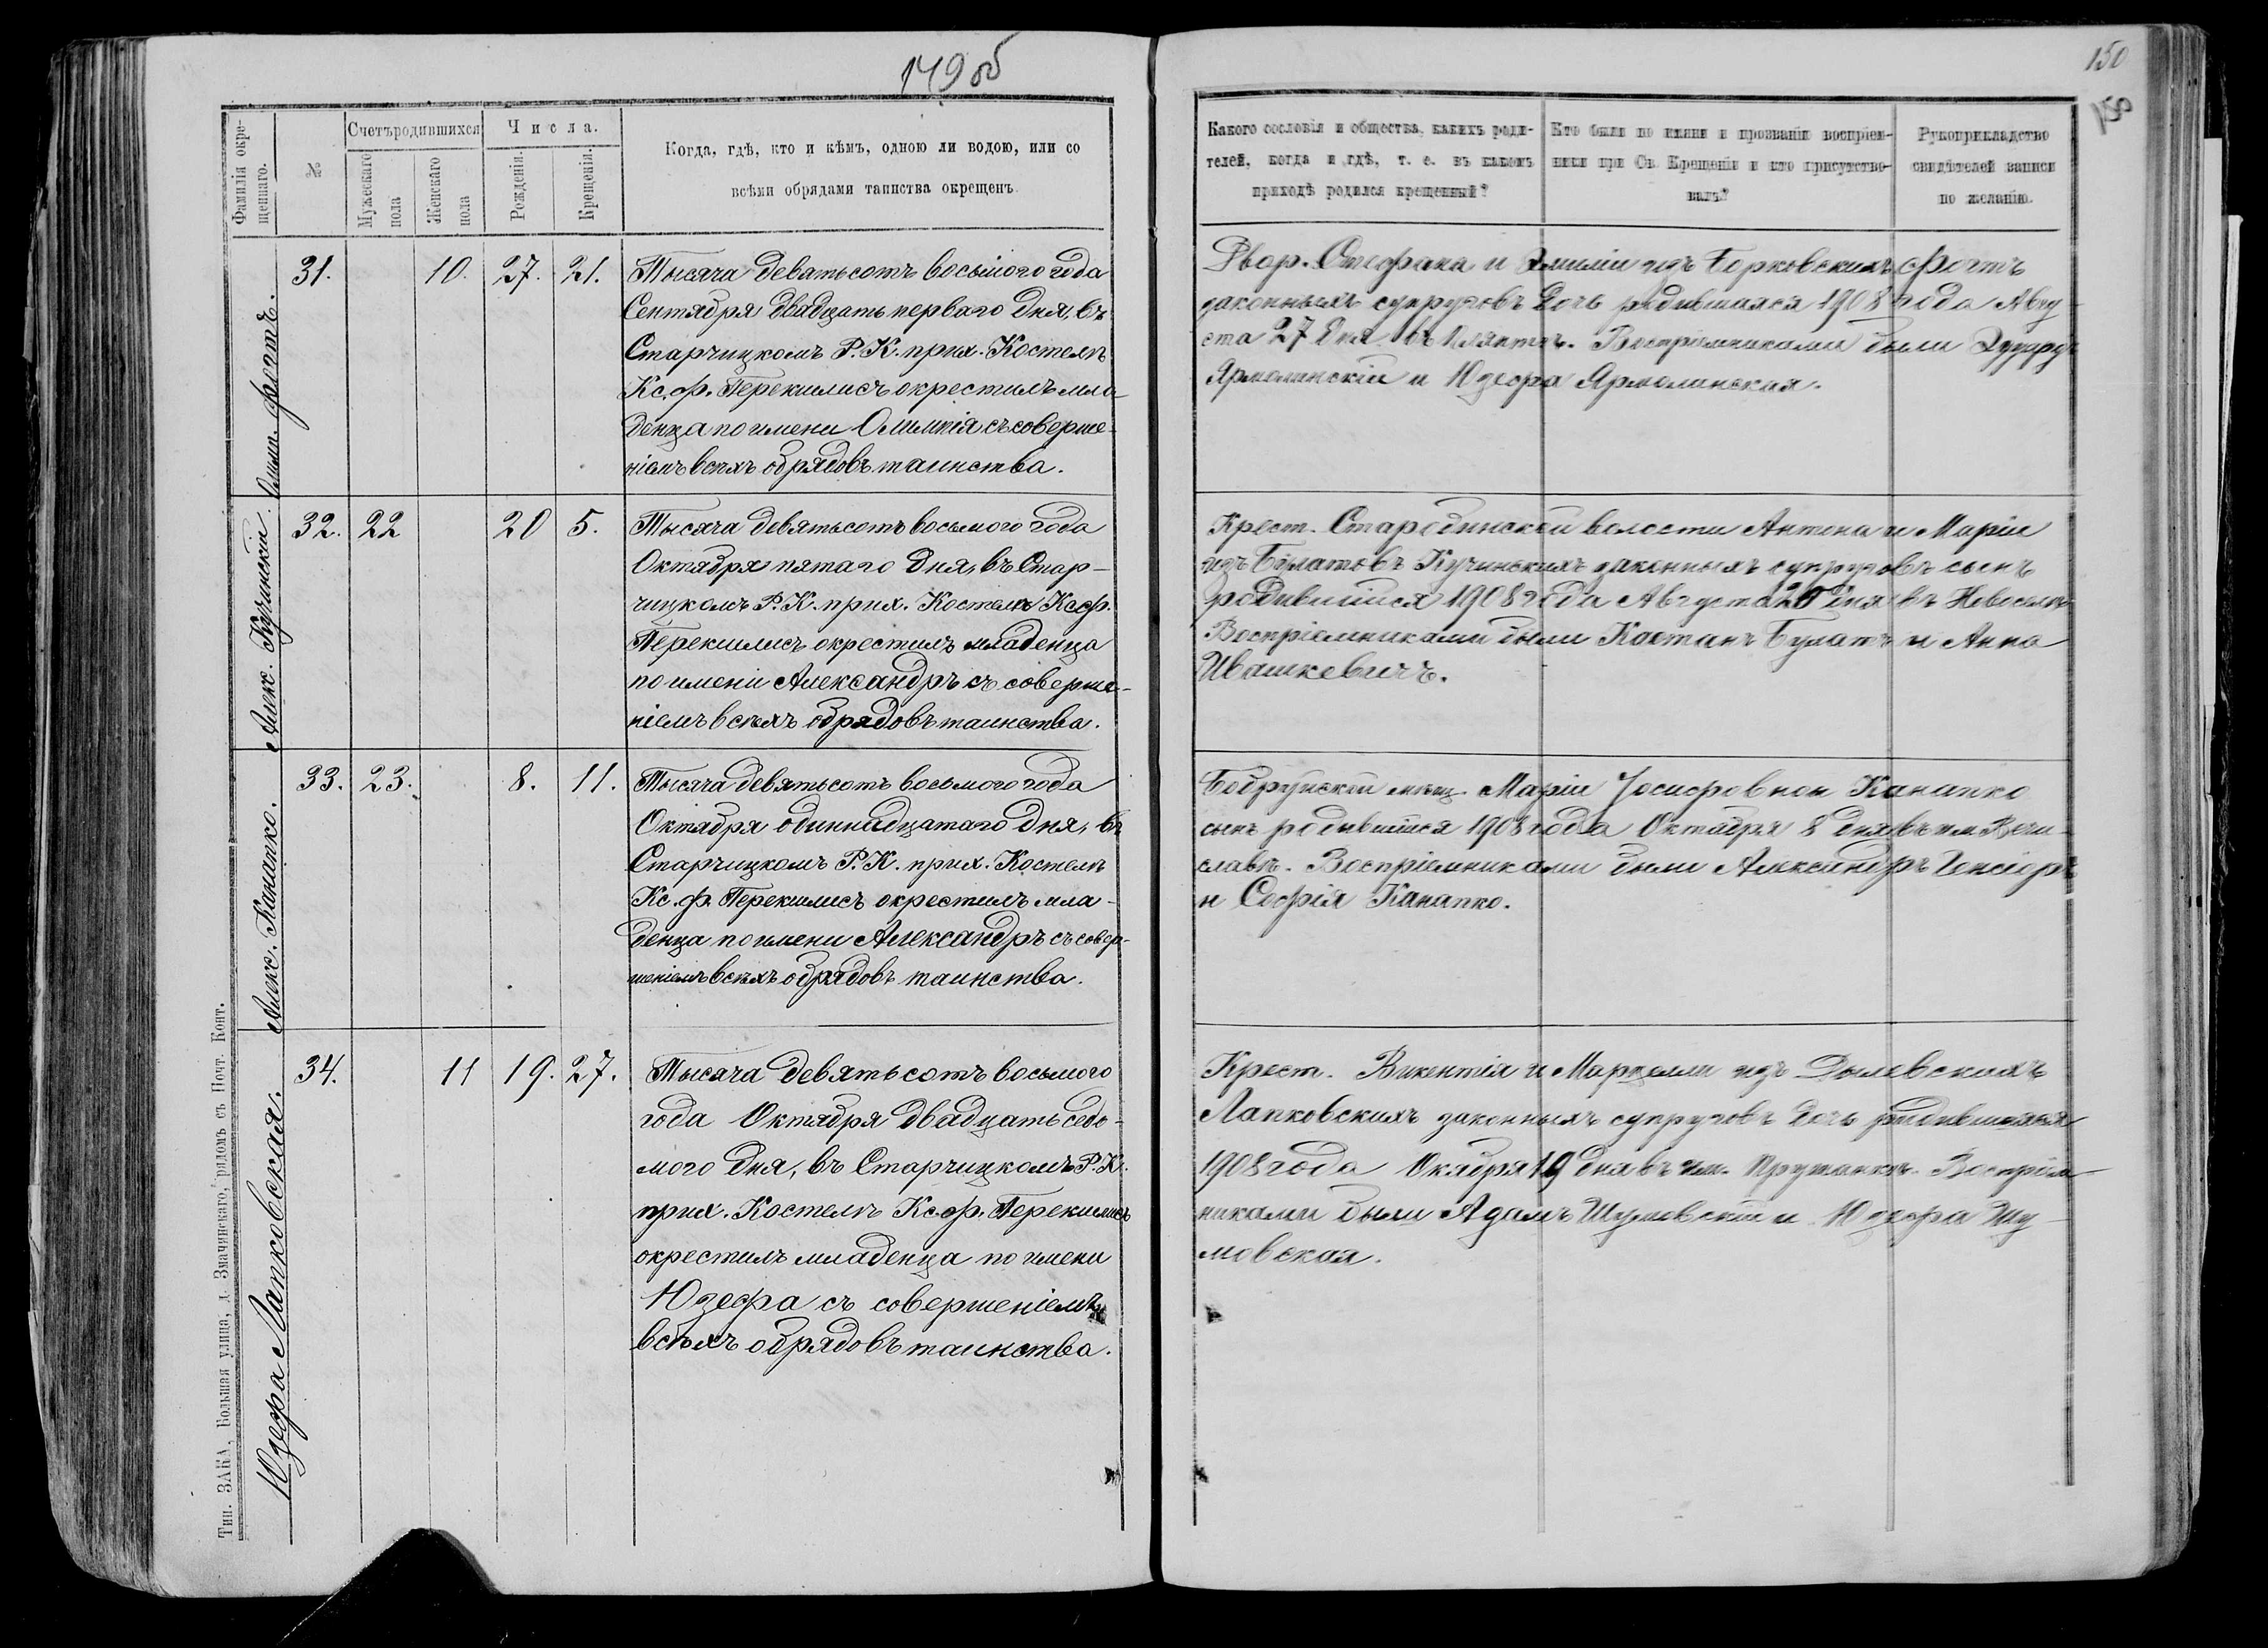 149 об
150
150
Фамилія окре-
щеннаго.
№
Счетъ родившихся
Мужескаго
пола
Женскаго
пола
Числа.
Рожденія.
Крещенія.
Когда, гдѣ, кто и кѣмъ, одною ли водою, или со
всѣми обрядами таинства окрещенъ
Какого сословія и общества, какихъ роди-
телей, когда и гдѣ, т. е. въ какомъ
приходѣ родился крещенный?
Кто были по имени и прозванію воспріем-
ники при Св. Крещеніи и кто присутство-
валъ?
Рукоприкладство
свидѣтелей записи
по желанію.
Олимп. Фостъ.
31.
10.
27.
21.
Тысяча девятьсотъ восьмого года
Сентября двадцать перваго дня, въ
Старчицкомъ Р. К. прих. Костелѣ
Кс. Ф. Перекшлисъ окрестилъ мла-
денца по имени Олимпія съ соверше-
ніемъ всѣхъ обрядовъ таинства.
Двор. Стефана и Эмиліи изъ Борковскихъ Фостъ
законныхъ супруговъ дочь родившаяся 1908 года Авгу-
ста 27 дня въ Воспріемниками были Эдуардъ
Ярмолинскій и Юзефа Ярмолинская.
Алекс. Кучинскій.
32.
22
20
5.
Тысяча девятьсотъ восьмого года
Октября пятаго дня, въ Стар-
чицкомъ Р. К. прих. Костелѣ Кс. Ф.
Перекшлисъ окрестилъ младенца
по имени Александръ съ соверше-
ніемъ всѣхъ обрядовъ таинства.
Крест. Старобинской волости Антона и Маріи
изъ Булатовъ Кучинскихъ законныхъ супруговъ сынъ
родившійся 1908 года Августа 20 дня въ Новоселк
Воспріемниками были Костанъ Булатъ и Анна
Ивашкевичъ.
Алекс. Канапко.
33.
23.
8.
11.
Тысяча девятьсотъ восьмого года
Октября одиннадцатаго дня, въ
Старчицкомъ Р. К. прих. Костелѣ
Кс. Ф. Перекшлисъ окрестилъ мла-
денца по имени Александръ съ совер-
шеніемъ всѣхъ обрядовъ таинства.
Бобруйской мѣщ. Маріи Іосифовнои Канапко
сынъ родившійся 1908 года Октября 8 дня въ им. Вечи-
славѣ. Воспріемниками были Александръ
и Софія Канапко.
Юзефа Лапковская.
34.
11
19.
27.
Тысяча девятьсотъ восьмого
года Октября двадцать седь-
мого дня, въ Старчицкомъ Р. К.
прих. Костелѣ Кс. Ф. Перекшлисъ
окрестилъ младенца по имени
Юзефа съ совершеніемъ
всѣхъ обрядовъ таинства.
Крест. Викентія и Марцели изъ Дылевскихъ
Лапковскихъ законныхъ супруговъ дочь родившаяся
1908 года Окября 19 дня въ им. Воспріем-
никами были Адамъ Шумовскій и Юзефа Шу-
мовская.
Тип. ЗАКА, Большая улица, д. Змачинскаго, рядомъ съ Почт. Конт.